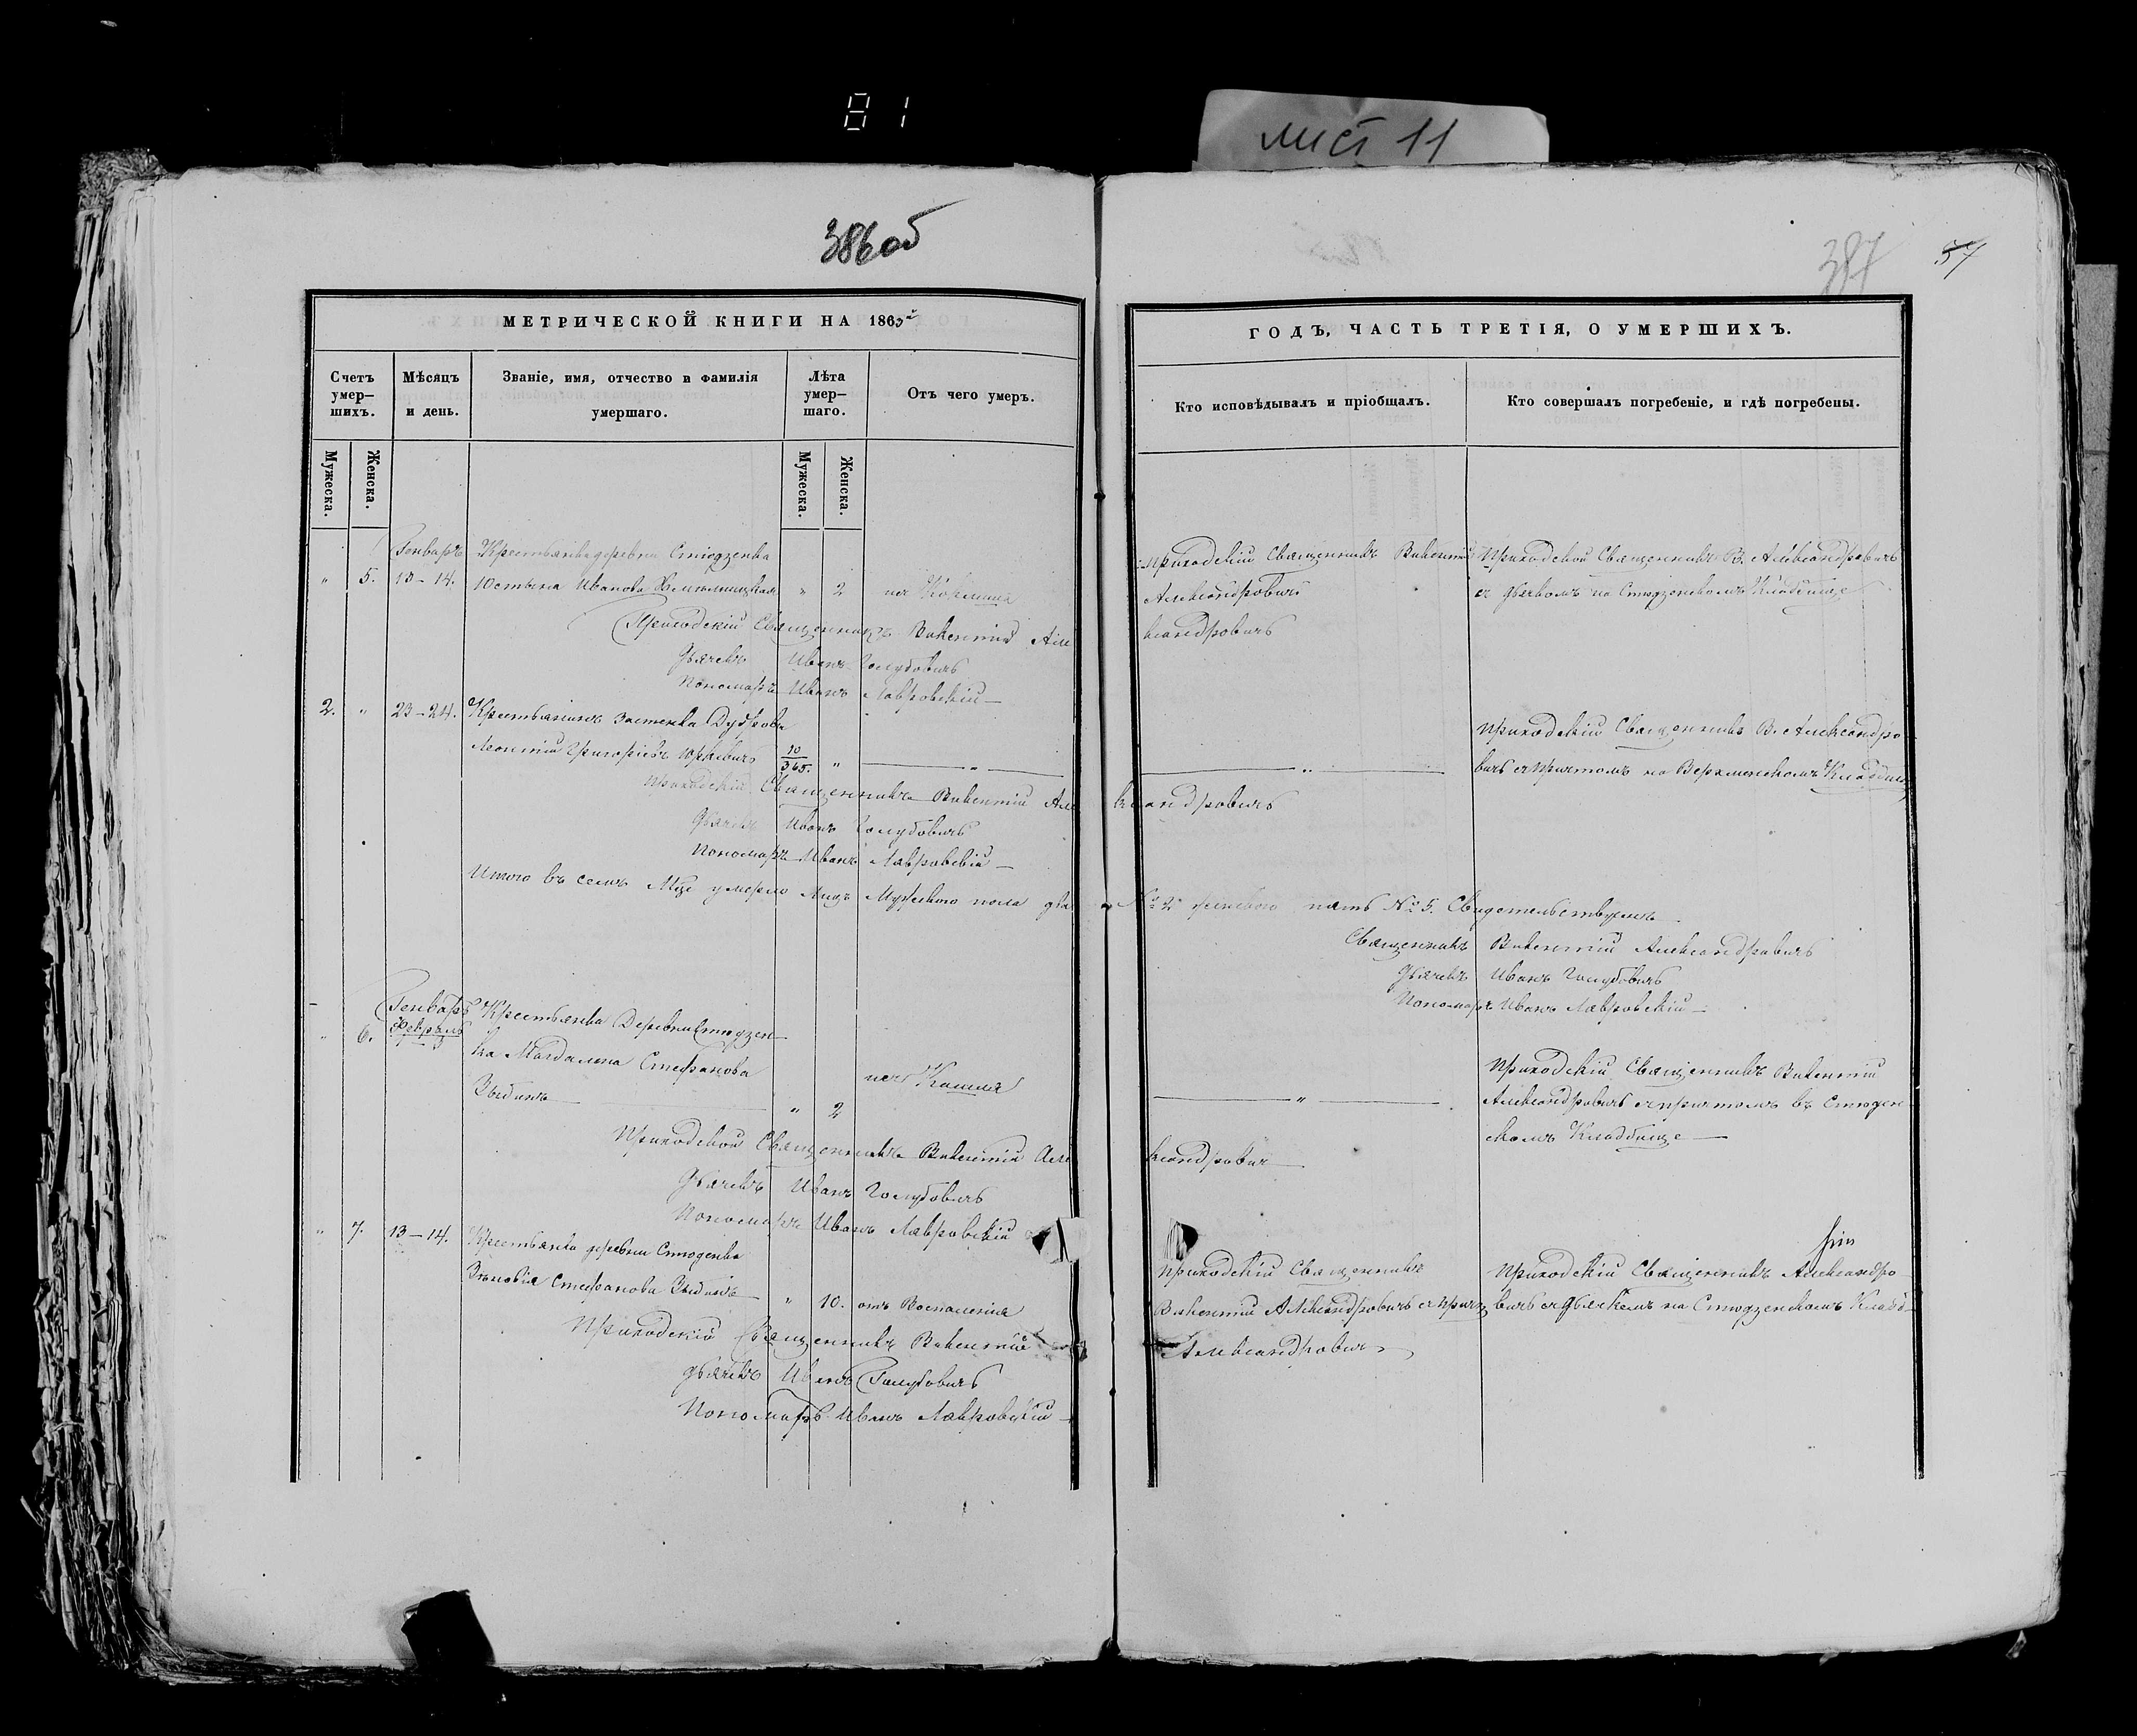 81
лист 11
386 об
387 57
МЕТРИЧЕСКОЙ КНИГИ НА 1863й
ГОДЪ, ЧАСТЬ ТРЕТІЯ, О УМЕРШИХЪ.
Счетъ умер–шихъ.
Мѣсяцъ и день.
Званіе, имя, отчество и фамилія умершаго.
Лѣта умер–шаго.
Отъ чего умеръ.
Кто исповѣдывалъ и пріобщалъ.
Кто совершалъ погребеніе, и гдѣ погребены.
Мужеска.
Женска.
Мужеска.
Женска.
Генваръ Крестьянка деревни Стюдзенка
" 5. 13–14. Юстына Иванова " 2
Приходскій Священникъ Викентій
Александровичъ
Приходской Священникъ В. Александровичъ
съ дьячкомъ на Стюдзенскомъ Кладбище
Приходскій Священникъ Викентій Александровичъ
Дьячекъ Иванъ Голубовичъ
Пономаръ Иванъ Лавровскій
2. " 23–24. Крестьянинъ застенка Дуброва
Леонтій Григоріевъ Юркевичъ 10/365. " "
"
Приходскій Священникъ В. Александро
вичъ съ причтомъ на Кладбище
Приходскій Священникъ Викентій Александровичъ
Дьячекъ Иванъ Голубовичъ
Пономаръ Иванъ Лавровскій
Итого въ семъ М–цѣ умерло Лицъ Мужеска пола два № 2 женскаго пять № 5. Свидетельствуемъ
Священникъ Викентій Александровичъ
Дьячекъ Иванъ Голубовичъ
Пономаръ Иванъ Лавровскій
Генваръ Крестьянка Деревни Стюдзен
" 6. Февраль
ка Магдалена Стефанова
" 2 Кашля
"
Приходскій Священникъ Викентій
Александровичъ съ причтомъ въ Стюдзен
скомъ Кладбище
Приходской Священникъ Викентій Александровичъ
Дьячекъ Иванъ Голубовичъ
Пономаръ Иванъ Лавровскій
" 7. 13–14. Крестьянка деревни Стюденка
Зѣновія Стефанова " 10. отъ Воспаленія
Приходскій Священникъ
Викентій Александровичъ съ прич
Приходскій Священникъ Александро
вичъ съ Дьячкомъ на Стюдзенскомъ Кладб
Приходскій Священникъ Викентій Александровичъ
Дьячекъ Иванъ Голубовичъ
Пономаръ Иванъ Лавровскій